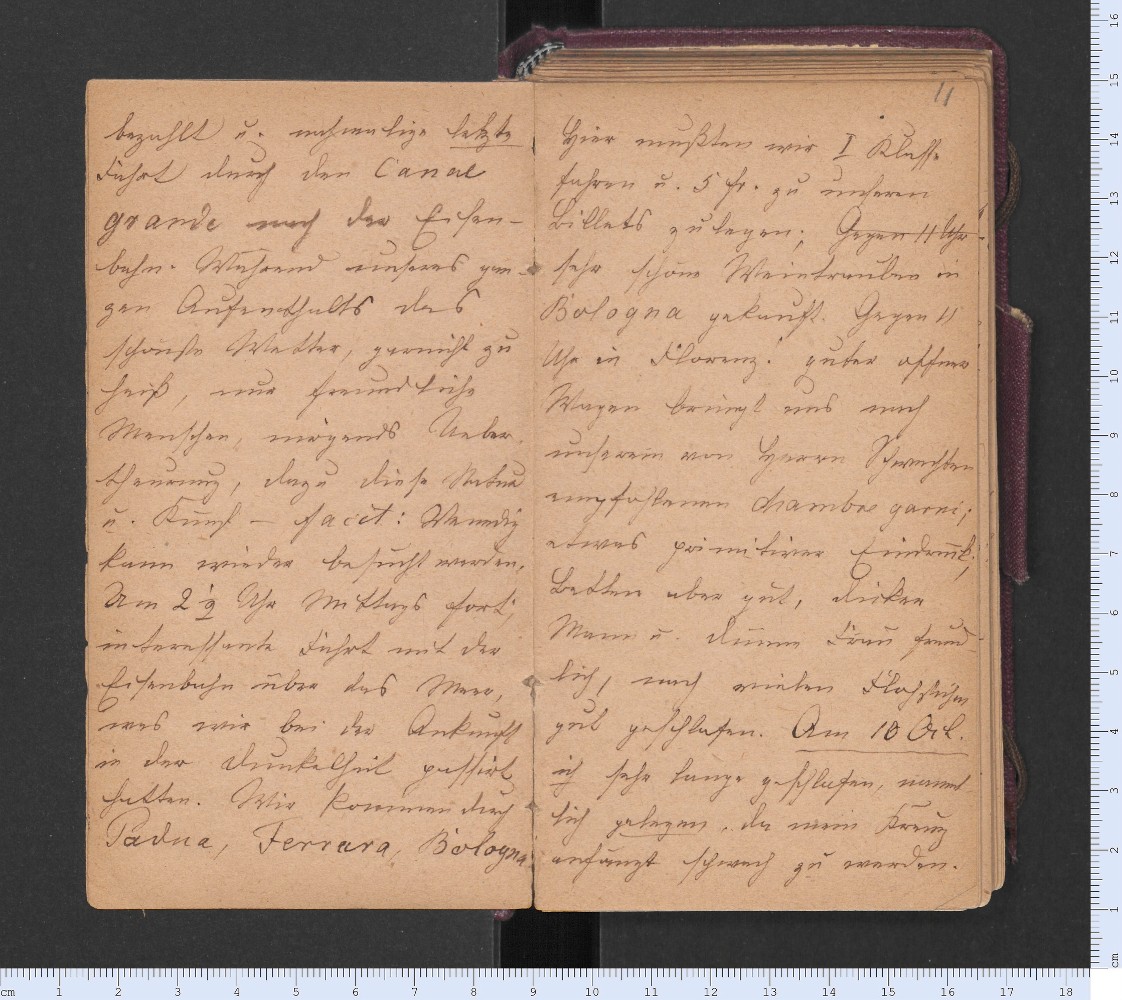 bezahlt u. nochmalige letzte
Fahrt durch den Canal
grande nach der Eisen-
bahn. Während unseres gan-
zen Aufenthalts das
schönste Wetter, garnicht zu
heiß, nur freundliche
Menschen, nirgends Ueber-
theurung, dazu diese Natur
u. Kunst – facit: Venedig
kann wieder besucht werden.
Um 2 1/2 Uhr Mittags fort,
interessante Fahrt mit der
Eisenbahn über das Meer,
was wir bei der Ankunft
in der Dunkelheit passirt
hatten. Wir kommen durch
Padua, Ferrara, Bologna.
11
Hier mußten wir I Klasse
fahren u. 5 fr. zu unseren
Billets zulegen; Gegen 11 Uhr
sehr schöne Weintrauben in
Bologna gekauft. Gegen 11
Uhr in Florenz. guter offner
Wagen bringt uns nach
unserem von Herrn Schwechten
empfohlenen chambre garni;
etwas primitiver Eindruck,
Betten aber gut, dicker
Mann u. dünne Frau freund-
lich, nach vielen Flohstichen
gut geschlafen. Am 10 Oct.
ich sehr lange geschlafen, nament-
lich gelegen, da mein Kreuz
anfängt schwach zu werden.